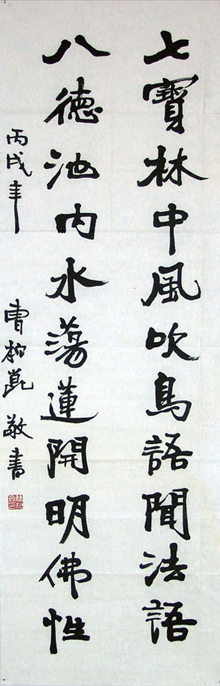 七寶林中風吹鳥語聞法語
八德池內水蕩蓮開明佛性
丙戌年 曹柏崑敬書